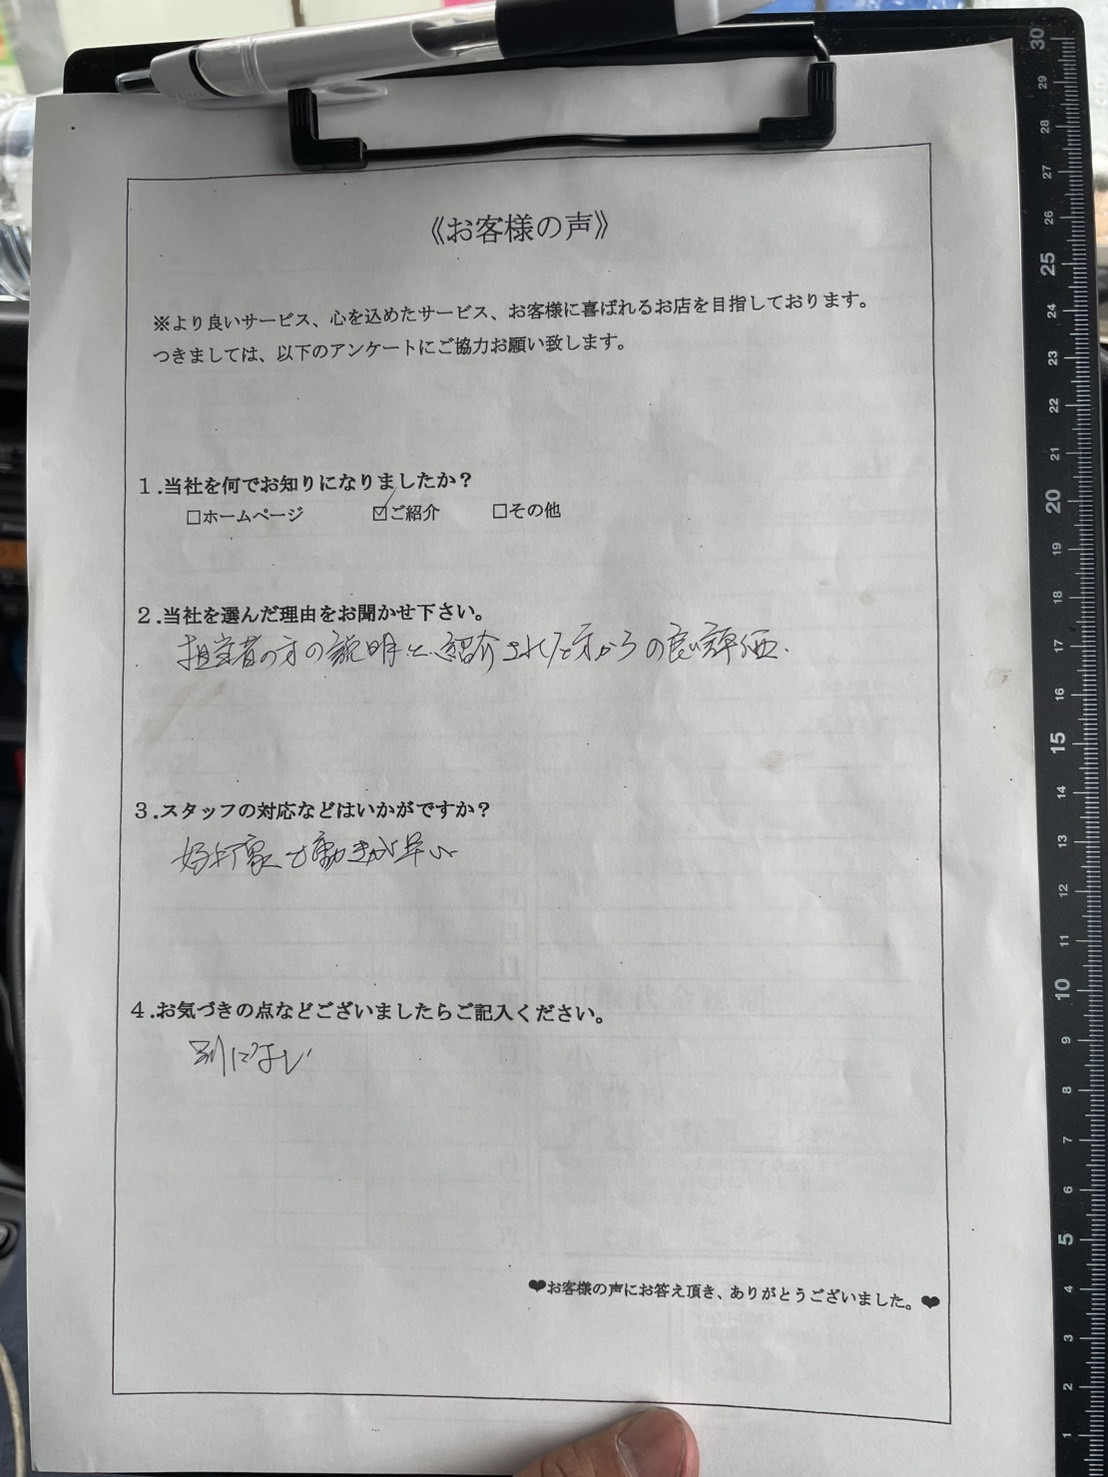 《お客様の声》
※より良いサービス、心を込めたサービス、お客様に喜ばれるお店を目指しております。
つきましては、以下のアンケートにご協力お願い致します。
1.当社を何でお知りになりましたか？
□ホームページ ☑ご紹介 □その他
2.当社を選んだ理由をお聞かせ下さい。
担当者の方の説明と、紹介された方からの良い評価.
3.スタッフの対応などはいかがですか？
好印象で動きが早い
4.お気づきの点などございましたらご記入ください。
別にない
❤お客様の声にお答え頂き、ありがとうございました。❤
30
29
28
27
26
25
24
23
22
21
20
19
18
17
16
15
14
13
12
11
10
9
8
7
6
5
4
3
2
1